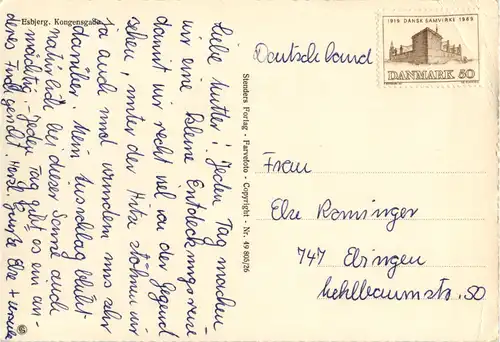 Esbjerg. Kongensgade
Liebe Mutter! Jeden Tag machen
wir eine kleine Entdeckungsreise
damit wir recht viel von der Gegend
sehen, unter der Hitze stöhnen wir
ja auch und wundern uns sehr
darüber. Mein Ausschlag blüht
natürlich bei dieser Sonne auch
mächtig. - Jeden Tag gibt es ein an-
deres Eis. Herzl. Grüße Else + Ursula
Stenders Forlag - Farvefoto - Copyright - Nr. 49 805/26
1919 DANSK SAMVIRKE 1969
DANMARK 50
Deutschland
Frau
Else Rominger
747 Ebingen
Mehlbaumstr. 50